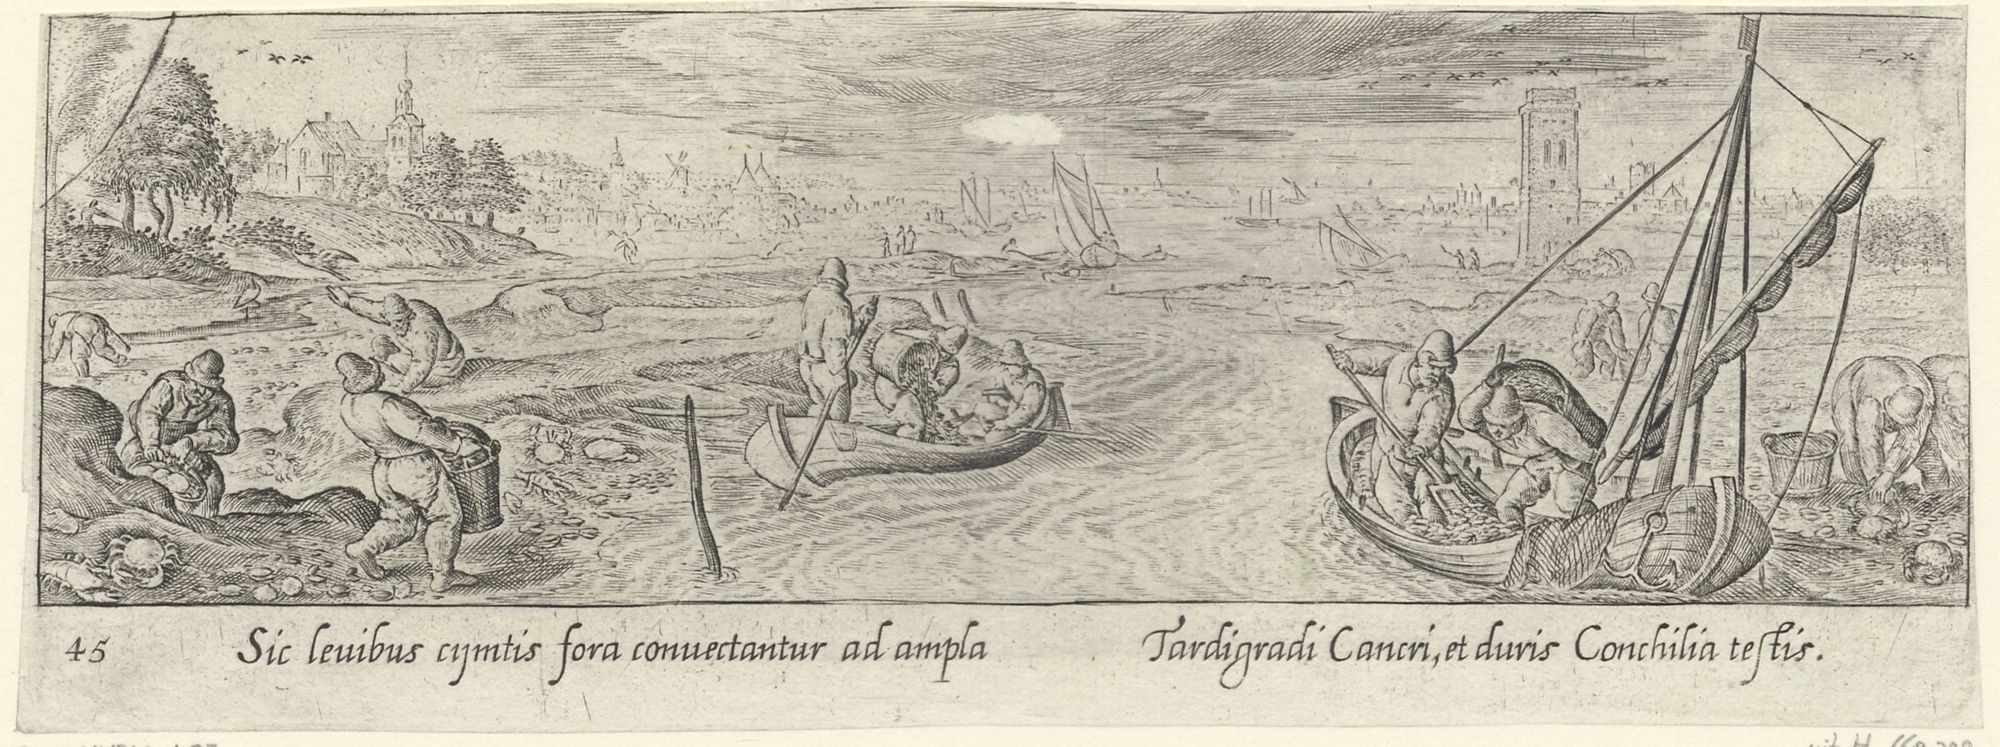 45 Sic leuibus cymtis fora conuectantur ad ampla Tardigradi Cancri, et duris Conchilia testis.